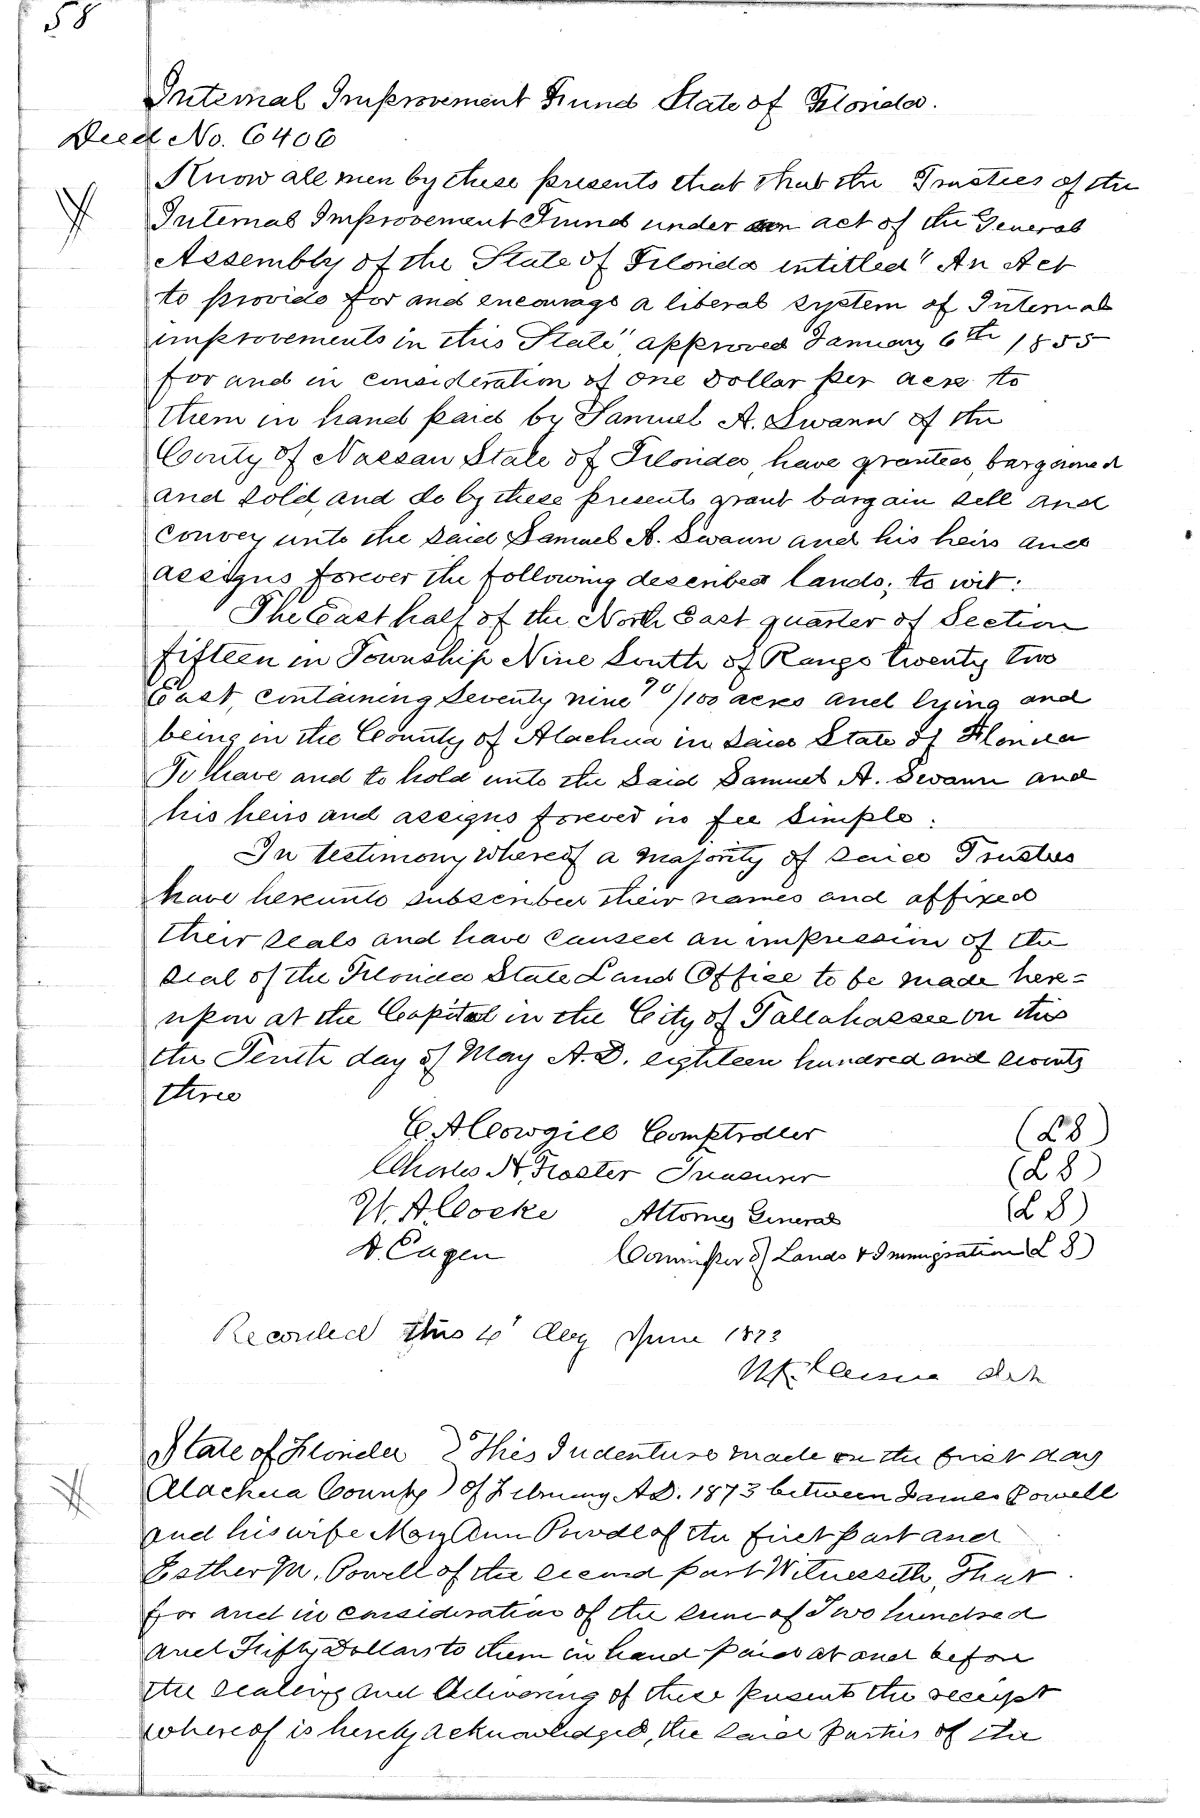 58
Internal Improvement Fund State of Florida.
Deed No. 6406
Know all men by these presents that that the Trustees of the
Internal Improvement Fund under an act of the General
Assembly of the State of Florida intitled "An Act
to provide for and encourage a liberal system of Internal
improvements in this State", approved January 6th 1855
for and in consideration of one Dollar per acre to
them in hand paid by Samuel A. Swann of the
County of Nassau State of Florida, have granted, bargained
and sold, and do by these presents grant bargain sell and
convey unto the said Samuel A. Swann and his heirs and
assigns forever the following described lands; to wit:
The East half of the North East quarter of Section
fifteen in Township Nine South of Range twenty two
East, containing Seventy nine 90/100 acres and lying and
being in the County of Alachua in said State of Florida
To have and to hold unto the Said Samuel A. Swann and
his heirs and assigns forever in fee simple.
In testimony whereof a majority of said Trustees
have hereunto subscribed their names and affixed
their seals and have caused an impression of the
seal of the Florida State Land Office to be made here=
upon at the Capitol in the City of Tallahassee on this
the Tenth day of May A.D. eighteen hundred and seventy
three
C. A. Cowgill Comptroller (L S)
Charles H. Foster Treasurer (L S)
W. A. Cocke Attorney General (L S)
D. Eagen Commissr of Lands & Immigration (L S)
Recorded this 4" day June 1873
State of Florida } This Indenture made on the first day
Alachua County } of February A.D. 1873 between James Powell
and his wife Mary Ann Powell of the first part and
Esther M. Powell of the second part Witnesseth, That
for and in consideration of the sum of Two hundred
and Fifty Dollars to them in hand paid at and before
the sealing and delivering of these presents the receipt
whereof is hereby acknowledged, the said parties of the